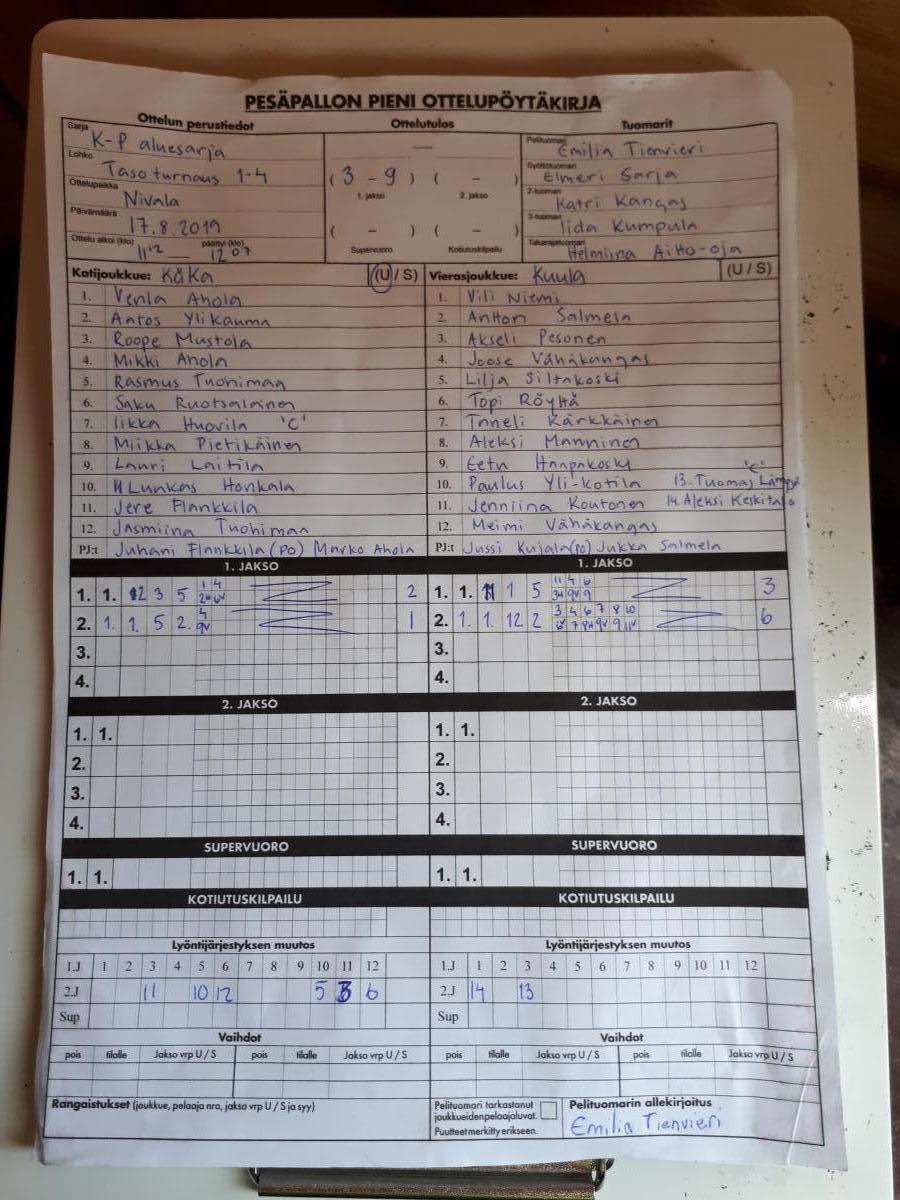 PESÄPALLON PIENI OTTELUPÖYTÄKIRJA
Ottelun perustiedot
Ottelutulos
Tuomarit
Sarja K-P aluesarja
Lohko Tasoturnaus 1-4
Ottelupaikka Nivala
Päivämäärä 17.8.2019
Ottelu alkoi (klo) päättyi (klo)
11 12 — 12 07
—
( 3 - 9 ) ( - )
1. jakso 2. jakso
( - ) ( - )
Supervuoro Kotiutuskilpailu
Pelituomari Emilia Tienvieri
Syöttötuomari Elmeri Sarja
2-tuomari Katri Kangas
3-tuomari Iida Kumpula
Takarajatuomari Helmiina Aitto-oja
Kotijoukkue: KäKa (U / S)
1. Venla Ahola
2. Aatos Ylikauma
3. Roope Mustola
4. Mikki Ahola
5. Rasmus Tuohimaa
6. Saku Ruotsalainen
7. Iikka Huovila 'C'
8. Miikka Pietikäinen
9. Lauri Laitila
10. Lunkas Honkala
11. Jere Flankkila
12. Jasmiina Tuohimaa
PJ:t Juhani Flankkila (PO) Marko Ahola
Vierasjoukkue: Kuula (U / S)
1. Vili Niemi
2. Antton Salmela
3. Akseli Pesonen
4. Joose Vähäkangas
5. Lilja Siltakoski
6. Topi Röyttä
7. Taneli Kärkkäinen
8. Aleksi Manninen
9. Eetu Haapakoski 'C'
10. Paulus Yli-kotila 13. Tuomas
11. Jenniina Koutonen 14. Aleksi Keskitalo
12. Meimi Vähäkangas
PJ:t Jussi Kujala (PO) Jukka Salmela
1. JAKSO
1. 1. 12 3 5 1 4 2
2. 1. 1. 5 2. 4 9V 1
3.
4.
1. JAKSO
1. 1. 11 1 5 11 4 6 3
2. 1. 1. 12 2 3 4 6 7 8 10 6
3.
4.
2. JAKSO
1. 1.
2.
3.
4.
2. JAKSO
1. 1.
2.
3.
4.
SUPERVUORO
1. 1.
SUPERVUORO
1. 1.
KOTIUTUSKILPAILU
KOTIUTUSKILPAILU
Lyöntijärjestyksen muutos
1.J 1 2 3 4 5 6 7 8 9 10 11 12
2.J 11 10 12 5 3 6
Sup
Lyöntijärjestyksen muutos
1.J 1 2 3 4 5 6 7 8 9 10 11 12
2.J 14 13
Sup
Vaihdot
pois tilalle Jakso vrp U / S pois tilalle Jakso vrp U / S
Vaihdot
pois tilalle Jakso vrp U / S pois tilalle Jakso vrp U / S
Rangaistukset (joukkue, pelaaja nro, jakso vrp U / S ja syy)
Pelituomari tarkastanut
joukkueidenpelaajaluvat.
Puutteet merkitty erikseen.
Pelituomarin allekirjoitus
Emilia Tienvieri